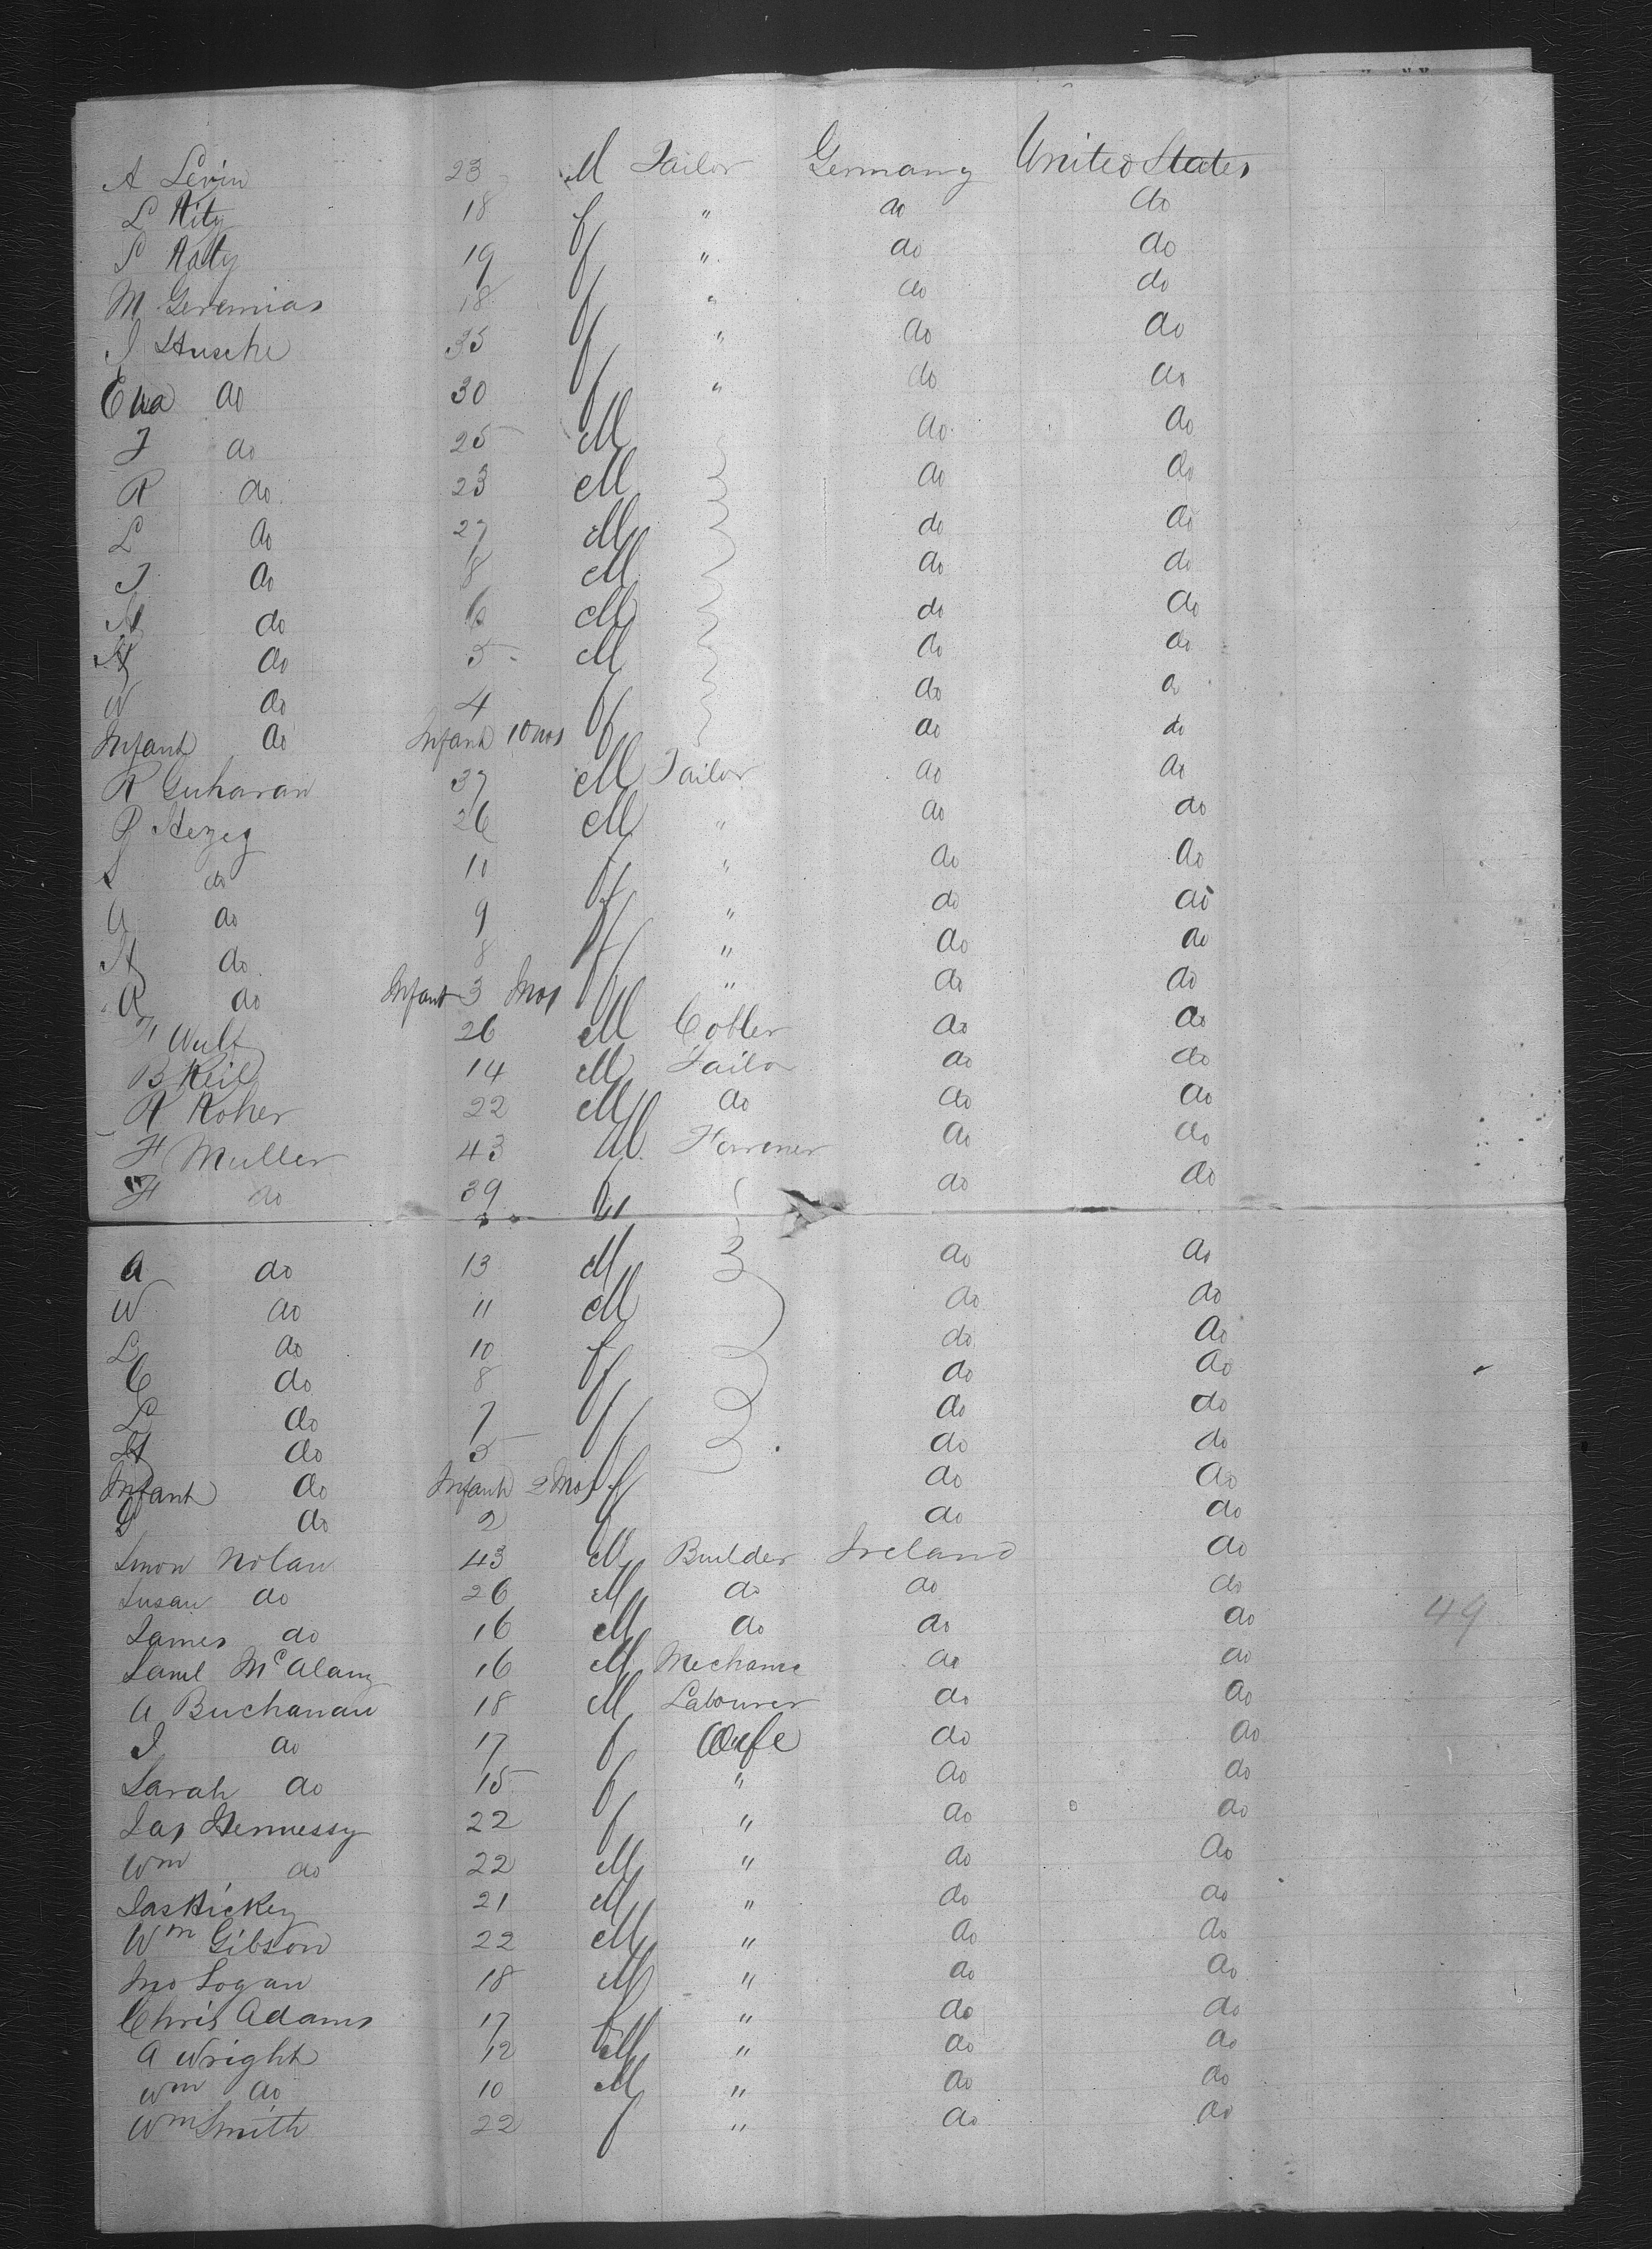 A Levin 23 M Tailor Germany United States
L Kitz 18 f " do do
S Katz 19 f " do do
M Geremias 18 f " do do
J Husche 35 f " do do
Eva do 30 f " do do
F do 25 M do do
R do 23 M do do
L do 27 M do do
J do 8 M do do
A do 6 M do do
H do 5 M do do
W do 4 f do do
Infant do Infant 10 mos f do do
R Guharan 37 M Tailor do do
P Hezeg 26 M " do do
S do 10 f " do do
A do 9 f " do do
H do 8 f " do do
R do Infant 3 Mos f " do do
H Wulf 26 M Cobler do do
B Keil 14 M Tailor do do
R Koher 22 M do do do
H Muller 43 M Farmer do do
H do 39 f do do
A do 13 M do do
W do 11 M do do
L do 10 f do do
C do 8 f do do
L do 7 f do do
H do 5 f do do
Infant do Infant 2 Mos f do do
do 2 f do do
Simon Nolan 43 M Builder Ireland do
Susan do 26 M do do do
James do 16 M do do do 49
Saml McAlany 16 M Mechanic do do
A Buchanan 18 M Labourer do do
J do 17 f Wife do do
Sarah do 15 f " do do
Jas Hennessy 22 f " do do
Wm do 22 M " do do
Jas Hickey 21 M " do do
Wm Gibson 22 M " do do
Jno Logan 18 M " do do
Chris Adams 17 f " do do
A Wright 12 M " do do
Wm do 10 M " do do
Wm Smith 22 f " do do